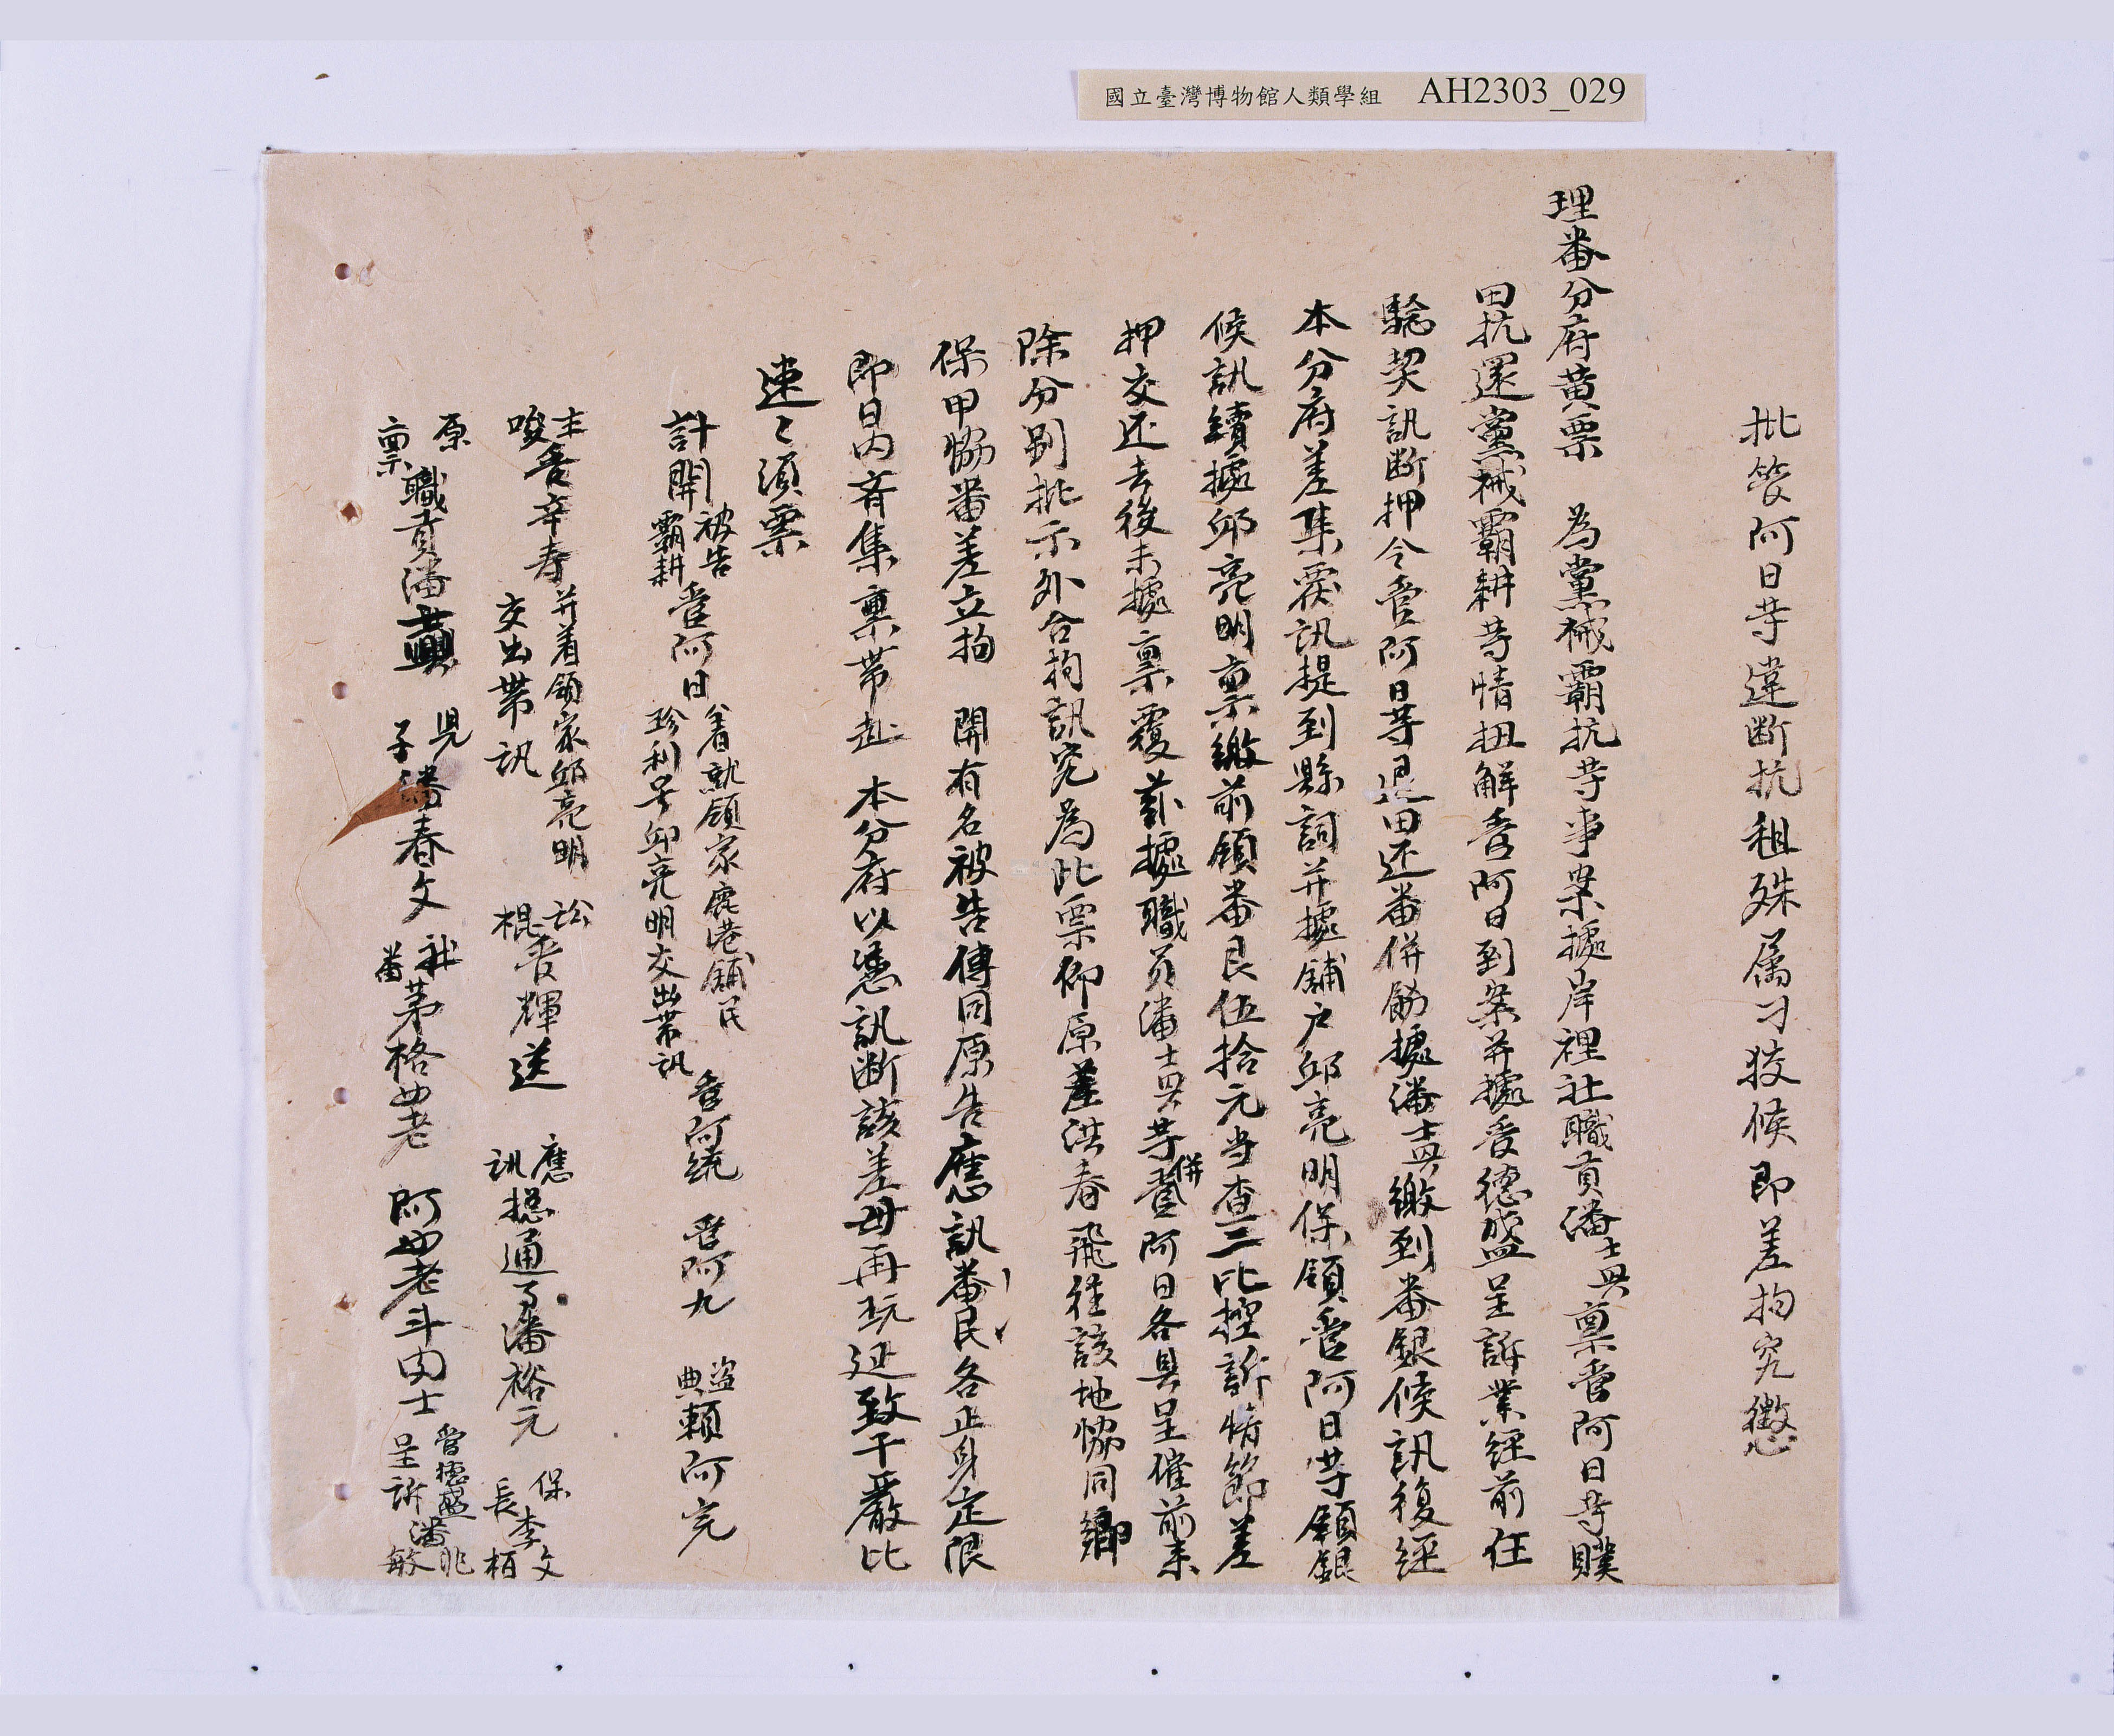 國立臺灣博物館人類學組 AH2303_029
批管阿日等違断抗租殊属刁狡候即差拘究懲
理番分府黄票 為黨械霸抗等事案據岸裡社職貢潘士興禀管阿日等贌
田抗還黨械霸耕等情扭解管阿日到案并據管德盛呈訴業經前任
驗契訊断押令管阿日等退田还番併飭據潘士興繳到番銀候訊復經
本分府差集覆訊提到縣詞并據舖户邱亮明保領管阿日等領銀
候訊續據邱亮明禀繳前領番艮伍拾元等查三比控訴情節差
押交还去後未據禀覆兹據職員潘士興等併管阿日各具呈催前来
除分别批示外合拘訊究為此票仰原差洪春飛往該地協同鄉
保甲協番差立拘 開有名被告傅同原告應訊番民各正身定限
即日内齊集禀帶赴 本分府以憑訊断該差毋再玩延致干嚴比
速ミ須票
計開 被告霸耕 管阿日 着就領家鹿港舖民珍利号邱亮明交出帶訊 管阿統 管阿九 盗典賴阿完
主唆管辛寿 并着領家邱亮明交出帶訊 訟棍管輝送 應訊摠通事潘裕元 保長李文栢
原禀職貢潘士興 児子潘春文 社番茅格曲老 阿曲老斗肉士 呈訴管德盛潘兆敏